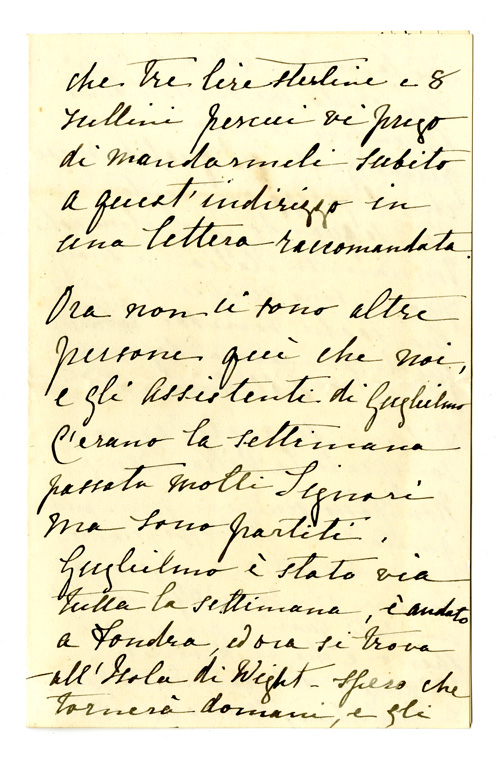 che tre lire sterline e 8
scellini percui vi prego
di mandarmeli subito
a quest' indirizzo in
una lettera raccomandata.
Ora non ci sono altre
persone quì che noi,
e gli assistenti di Guglielmo
C'erano la settimana
passata molti Signori
ma sono partiti.
Guglielmo è stato via
tutta la settimana, è andato
a Londra, ed ora si trova
all'Isola di Wight - spero che
tornerà domani, e gli